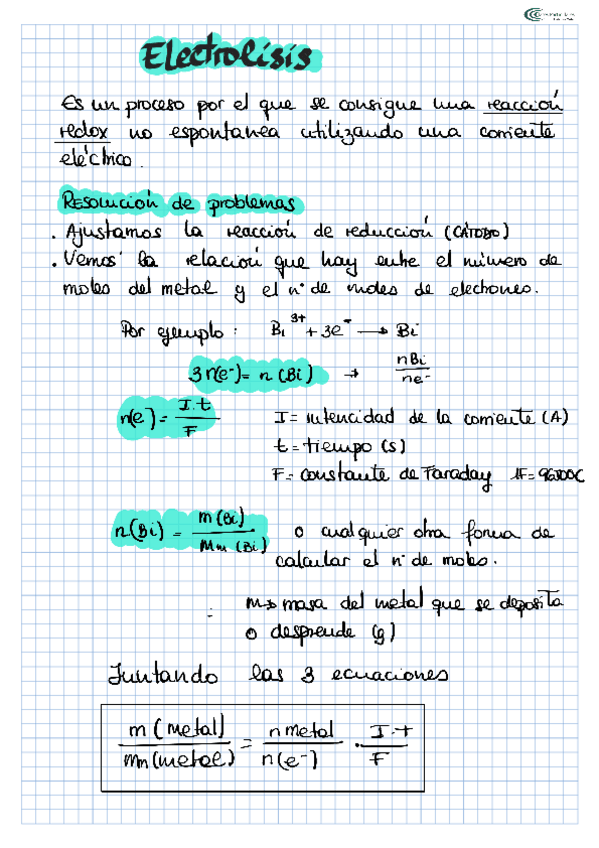 Electrolisis
Es un proceso por el que se consigue una reacción
redox no espontanea utilizando una corriente
eléctrica.
Resolución de problemas
. Ajustamos la reacción de reducción (CÁTODO)
. Vemos la relación que hay entre el número de
moles del metal y el nº de moles de electrones.
Por ejemplo: Bi³⁺ + 3e⁻ → Bi
3n(e⁻) = n (Bi) → nBi / ne⁻
n(e⁻) = I·t / F
I = intencidad de la corriente (A)
t = tiempo (s)
F = constante de Faraday 1F = 96500C
n(Bi) = m(Bi) / Mm (Bi) o cualquier otra forma de
calcular el nº de moles.
m → masa del metal que se deposita
o desprende (g)
Juntando las 3 ecuaciones
m (metal) / Mm (metal) = n metal / n(e⁻) · I·t / F